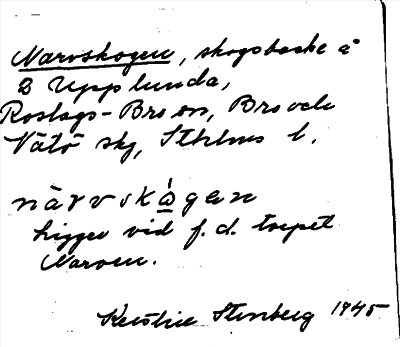 Narvskogen, skogsbacke å
2 Upplunda,
Roslags-Bro sn, Bro och
Vätö skg, Sthlms l.
närvskógen
ligger vid f.d. torpet
Narven.
Kerstin Stenberg 1945